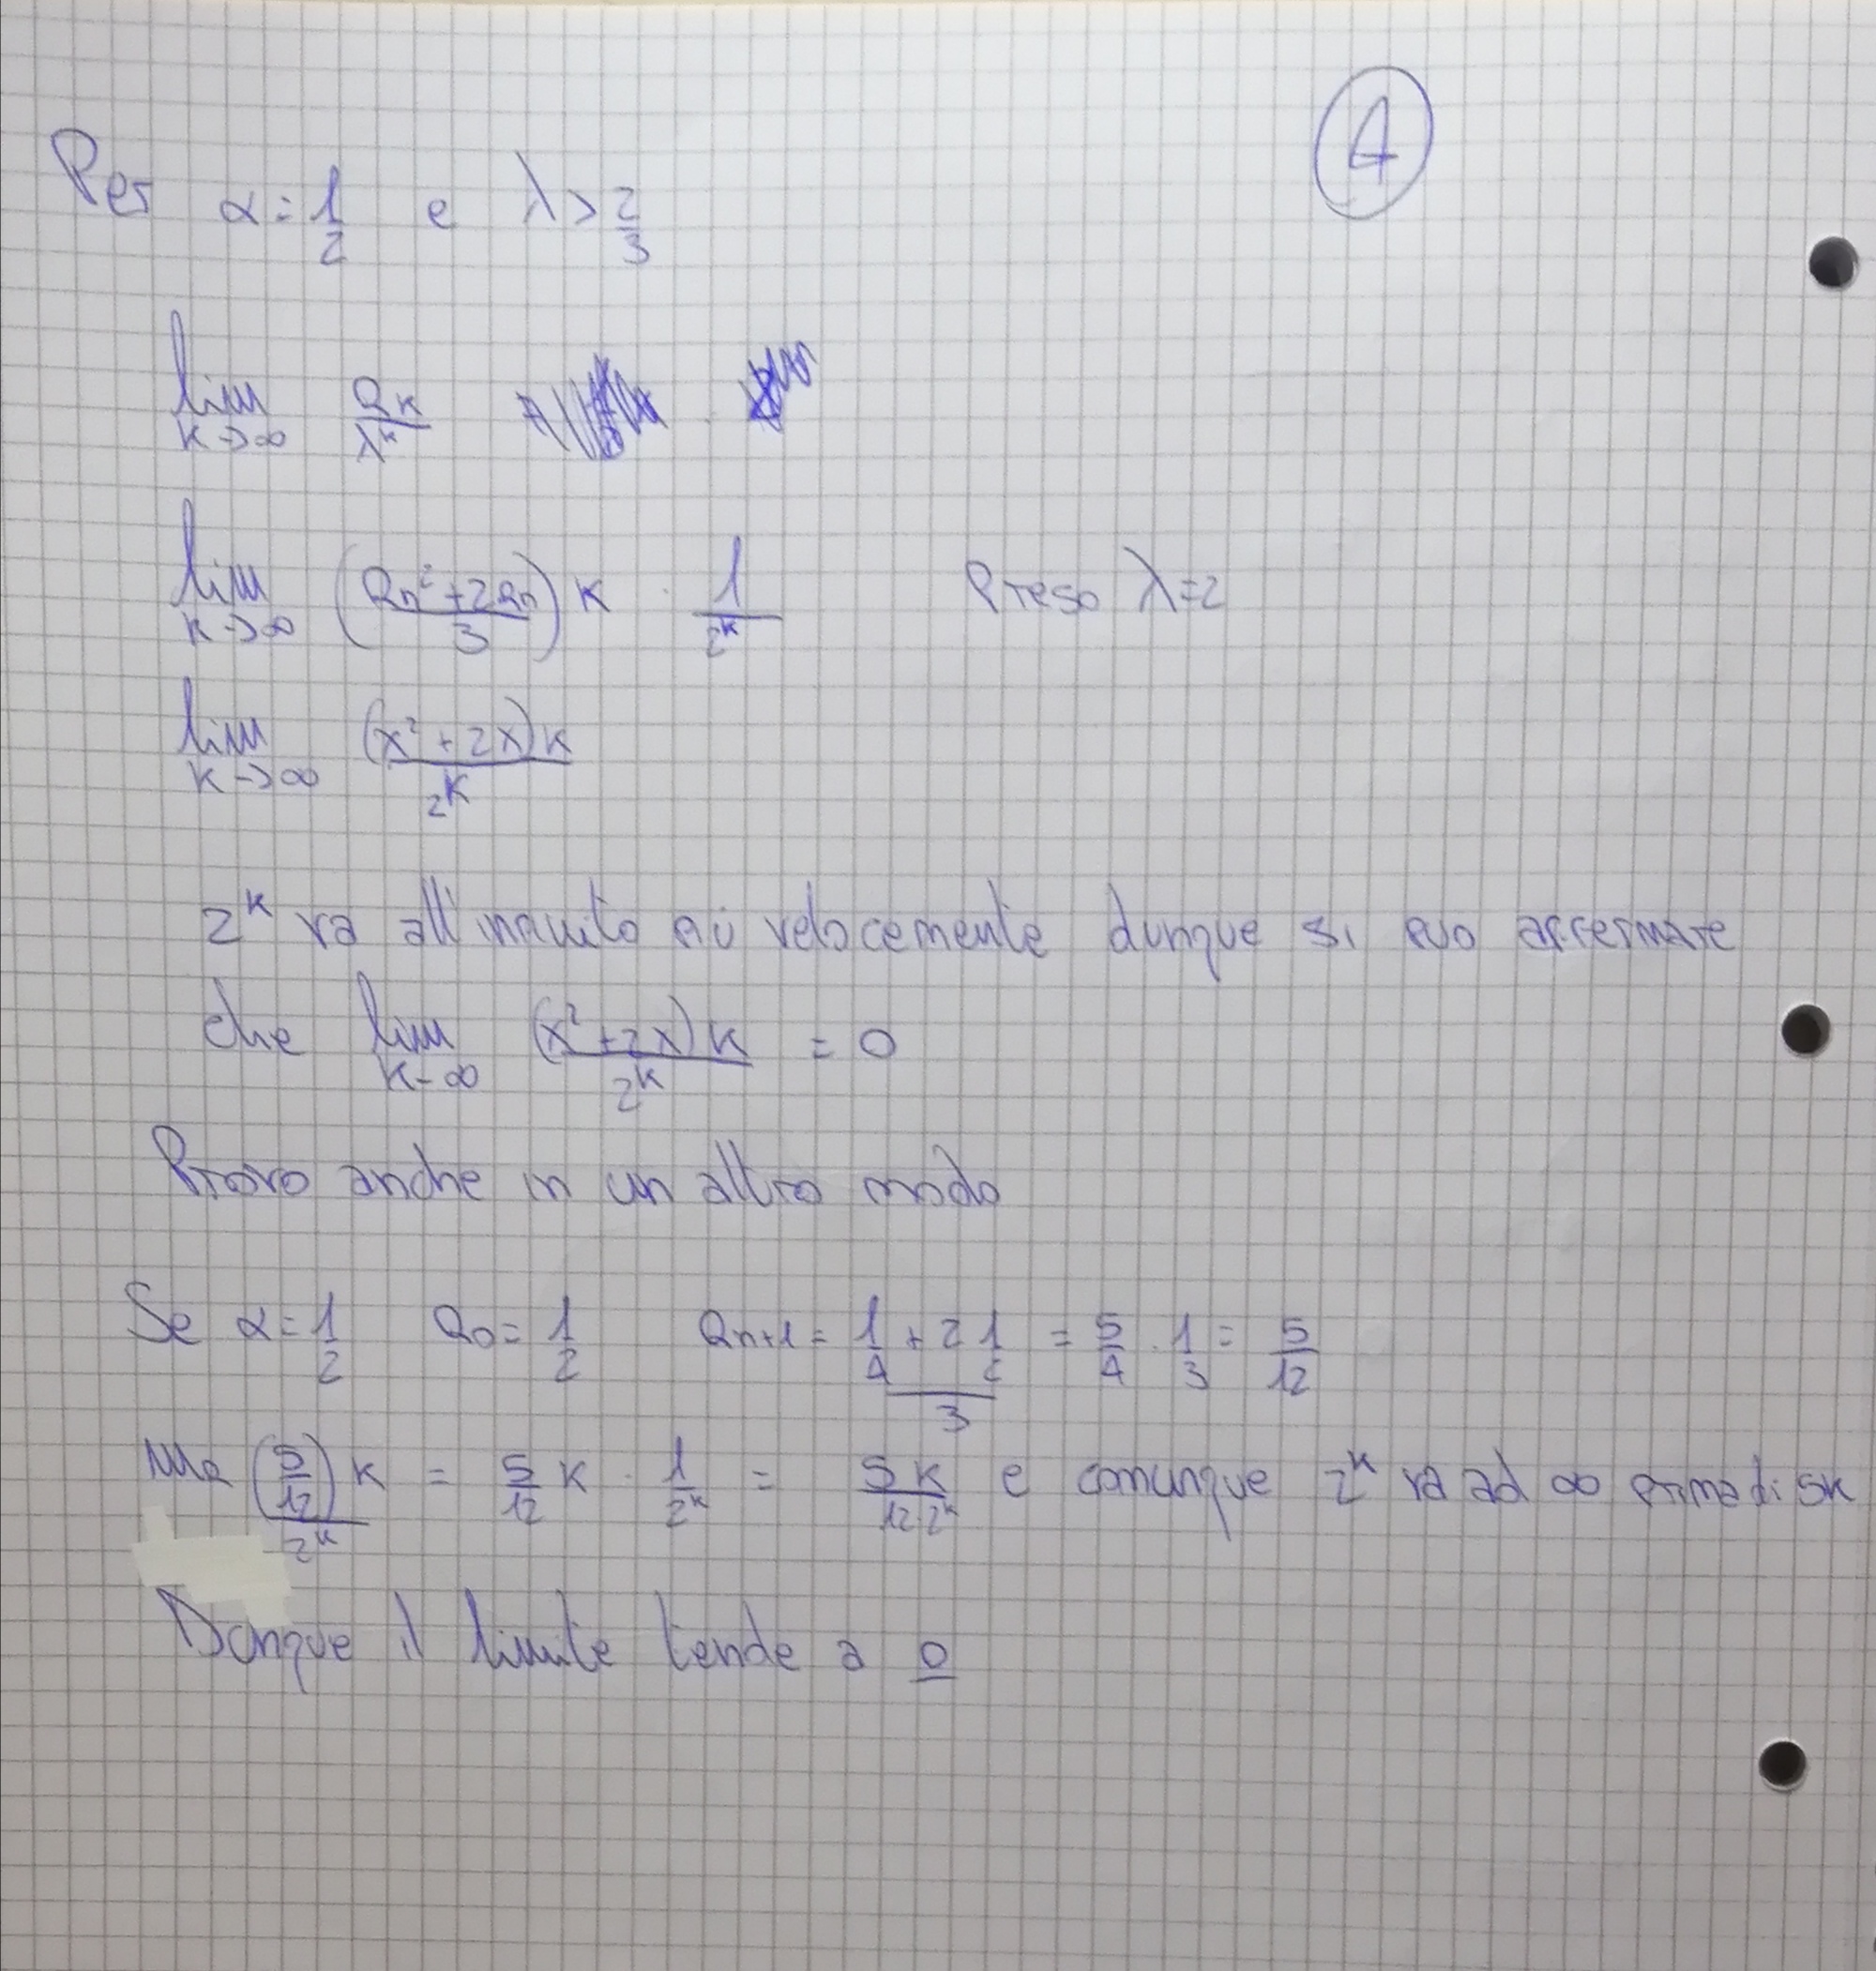 4
Per α = 1/2 e λ > 2/3
lim k→∞ ak/λ^k
lim k→∞ ((an² + 2an)/3) k · 1/2^k Preso λ=2
lim k→∞ (x² + 2x)k / 2^k
2^k va all'inquito più velocemente dunque si può affermare
che lim k-∞ (x² + 2x)k / 2^k = 0
Provo anche in un altro modo
Se α = 1/2 a0 = 1/2 an+1 = (1/4 + 2 1/2)/3 = 5/4 · 1/3 = 5/12
Ma (5/12)k / 2^k = 5/12 k · 1/2^k = 5k/(12·2^k) e comunque 2^k va ad ∞ prima di 5k
Dunque il limite tende a 0